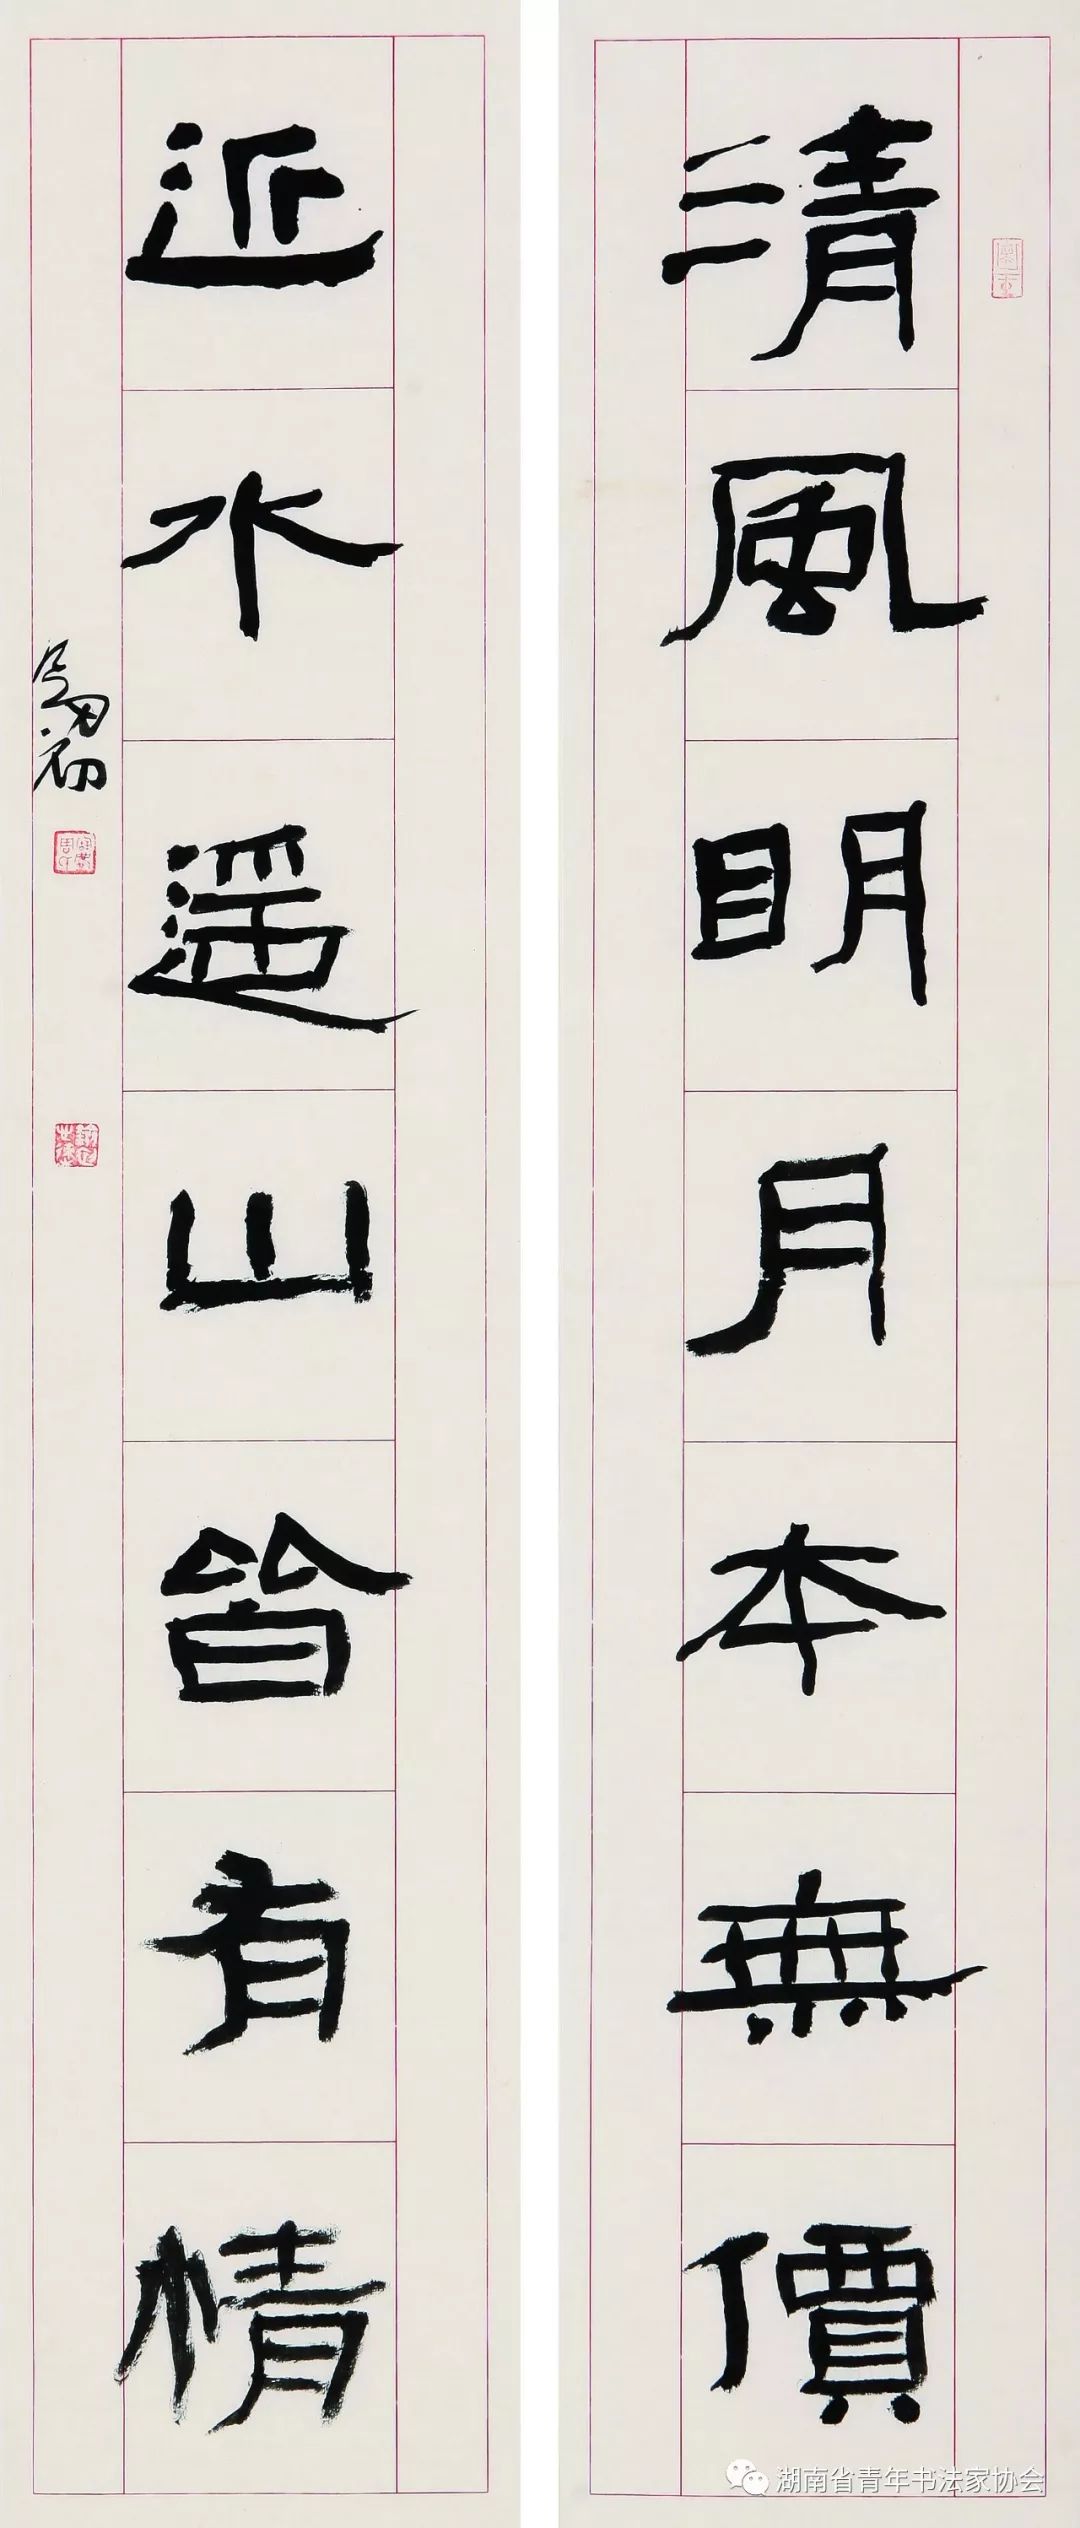 清風明月本無價
近水遥山皆有情
湖南省青年书法家协会